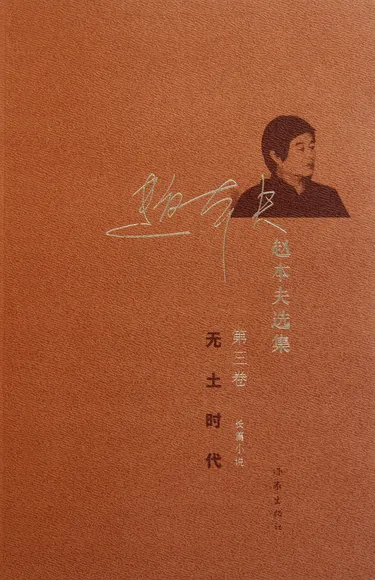 赵本夫
赵本夫选集
第三卷
长篇小说
无土时代
作家出版社